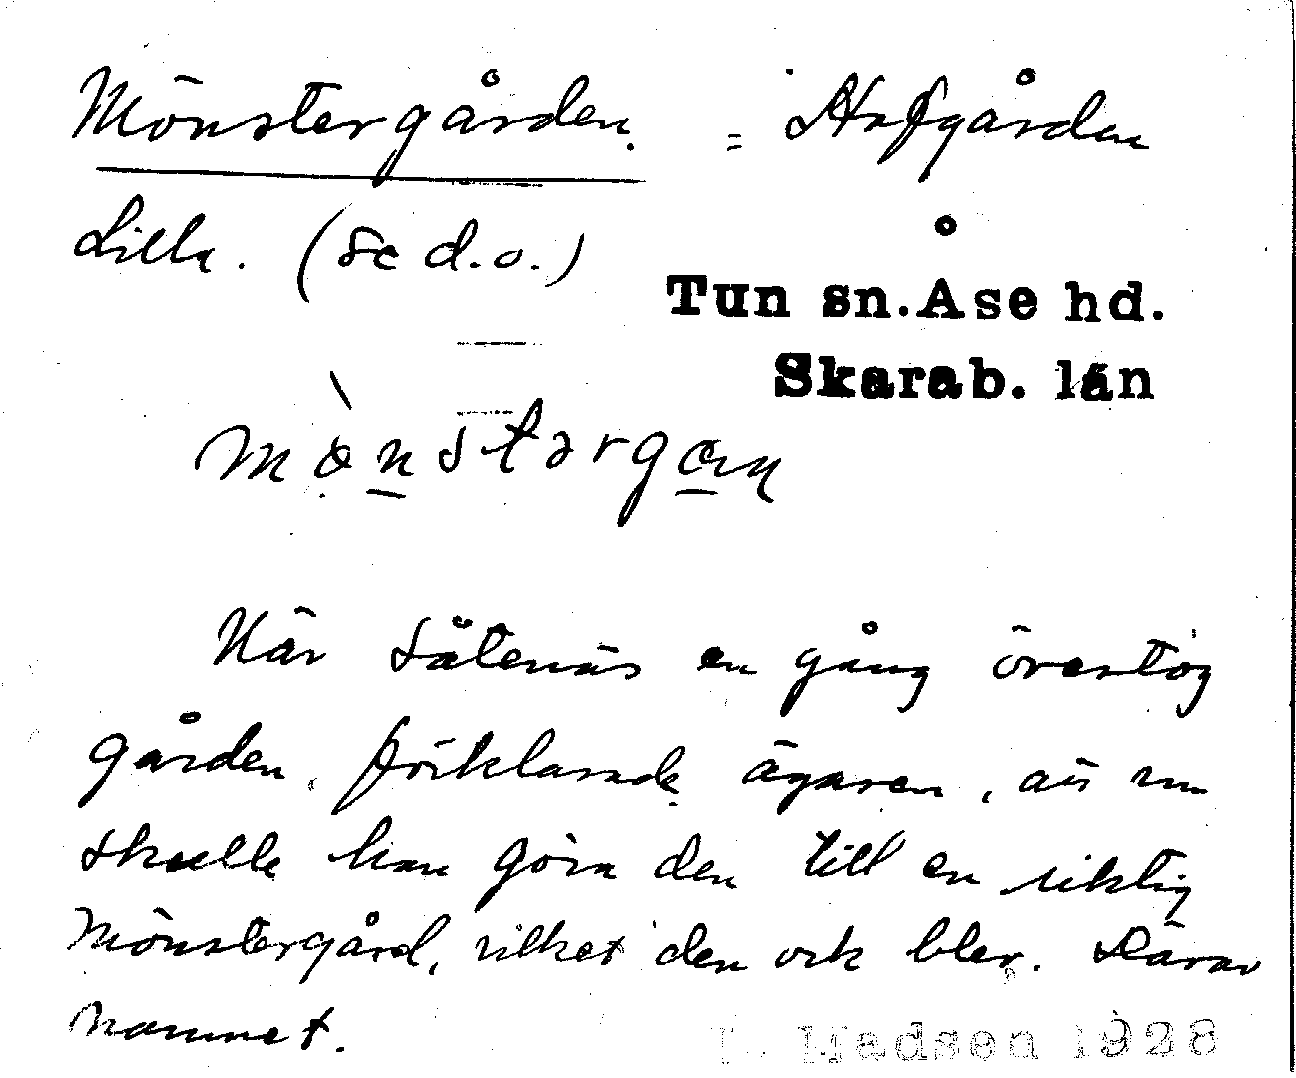 Mönstergården. = Hofgården
Lilla. (se d.o.)
Tun sn. Åse hd.
Skarab. län
När Såtenäs en gång övertog
gården, förklarade ägaren, att nu
skulle han göra den till en riktig
Mönstergård, vilket den ock blev. Därav
namnet.
Madsen 1928